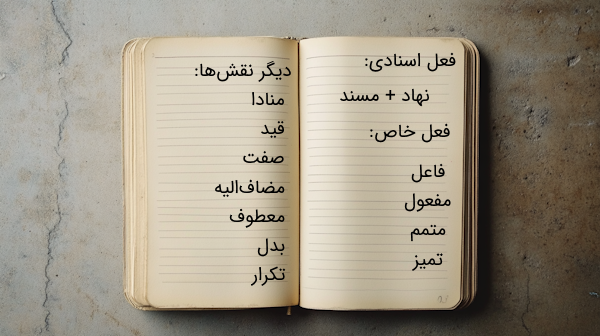 فعل اسنادی:
نهاد + مسند
فعل خاص:
فاعل
مفعول
متمم
تمیز
دیگر نقش‌ها:
منادا
قید
صفت
مضاف‌الیه
معطوف
بدل
تکرار